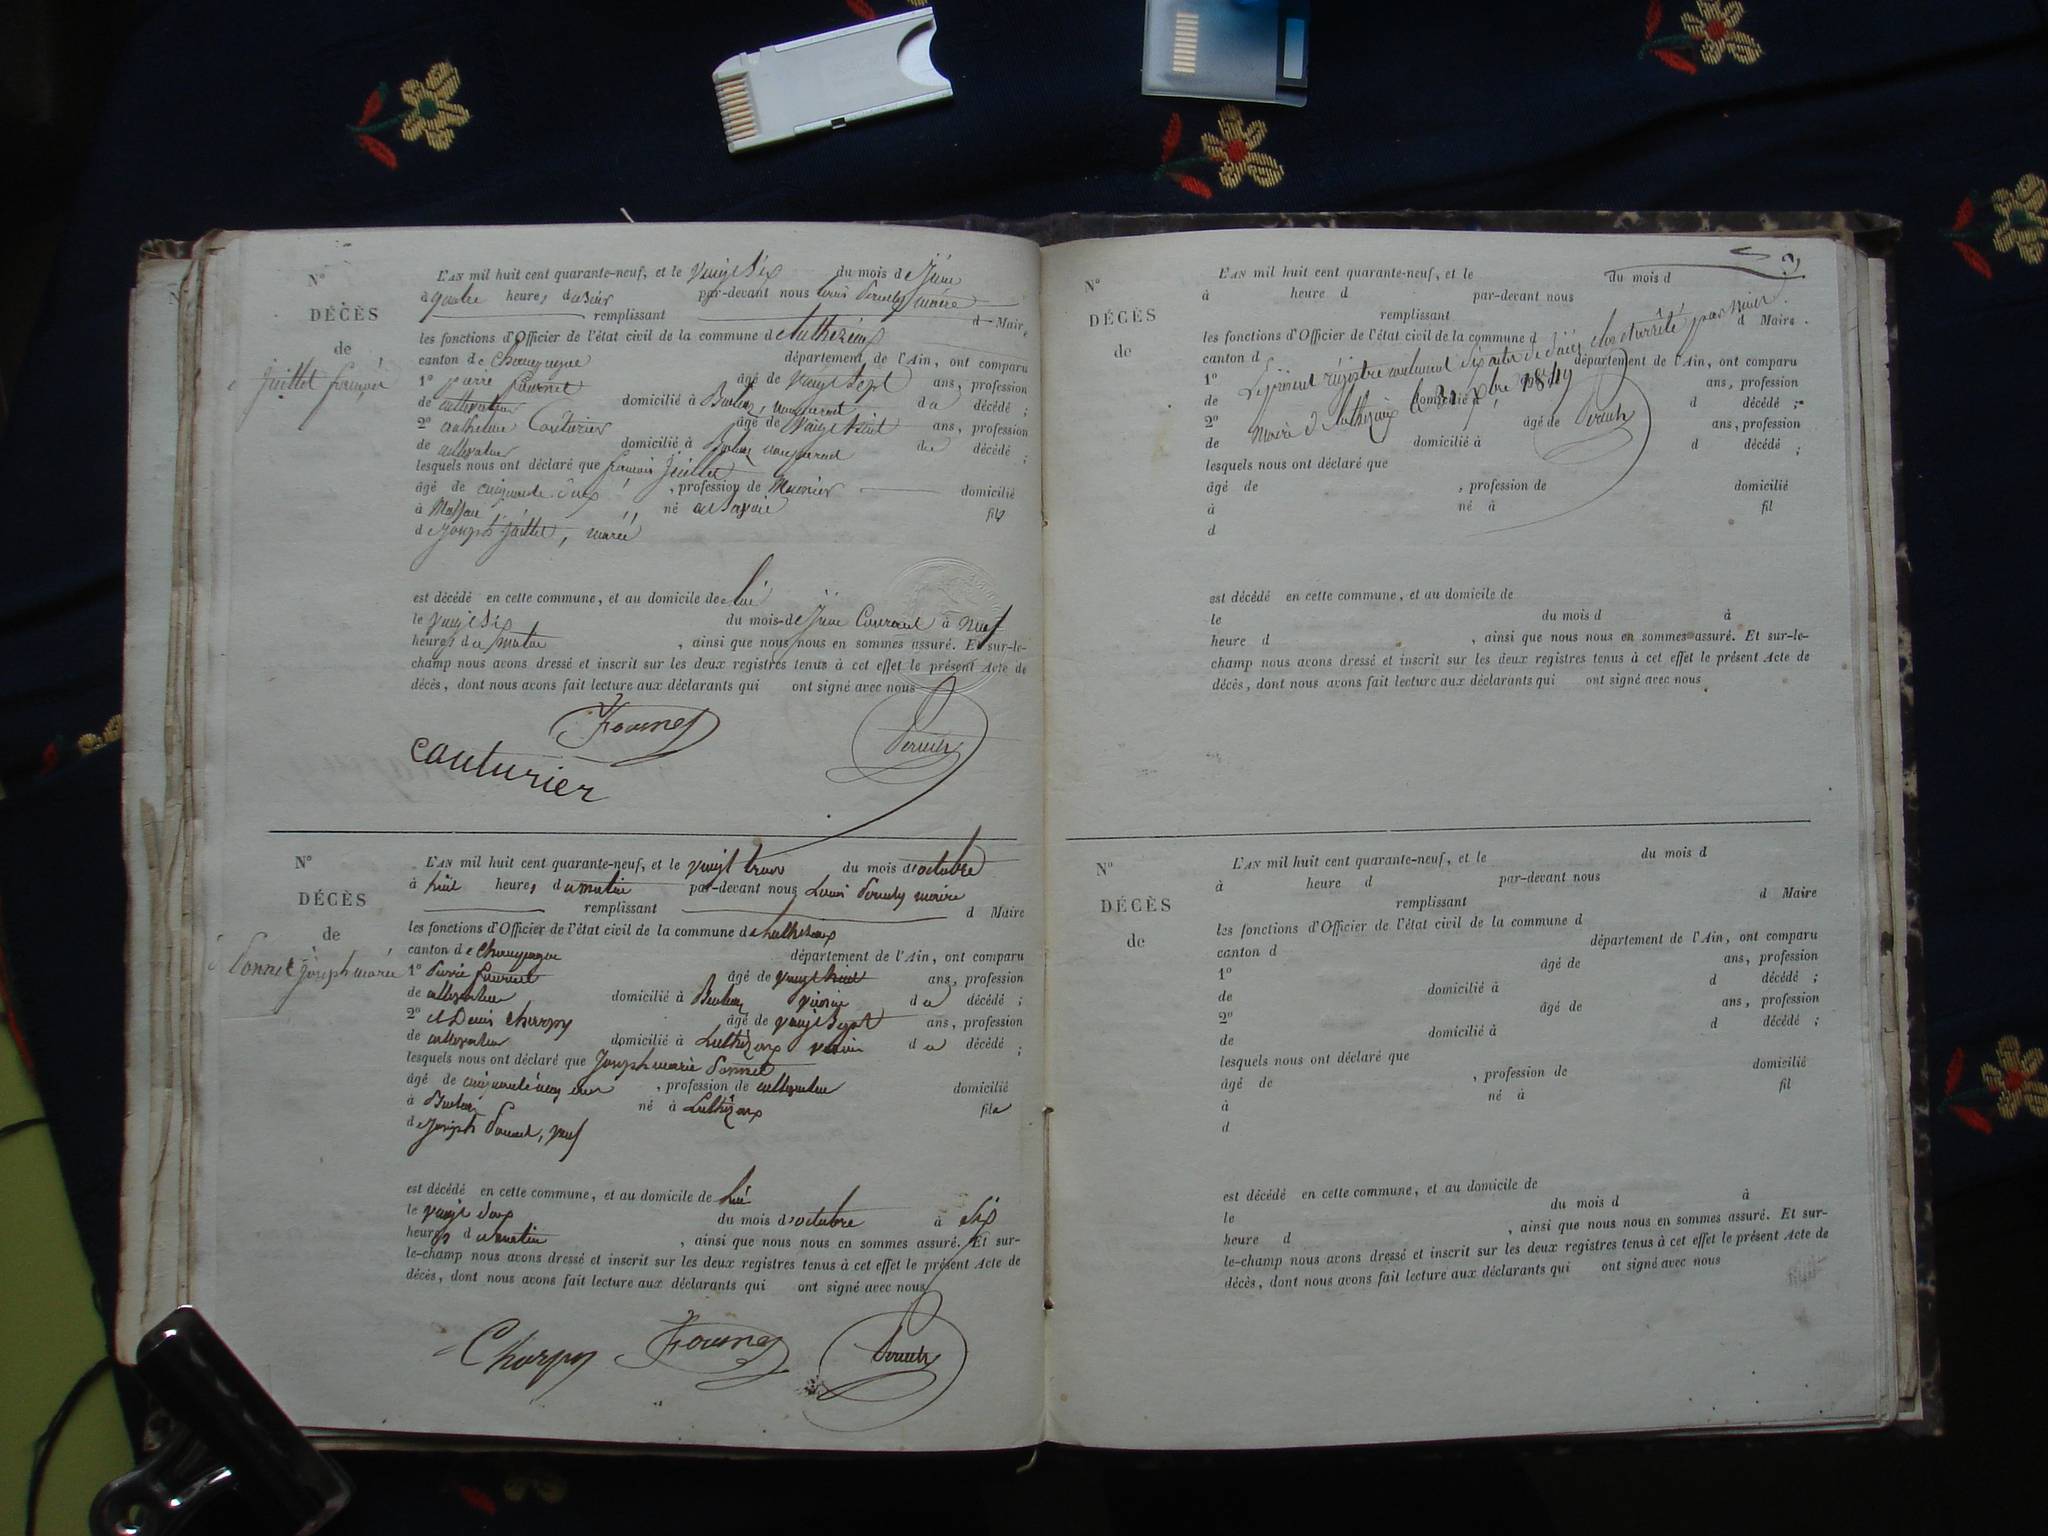 N°
DÉCÈS
de
Juillet françois
L'AN mil huit cent quarante-neuf, et le vingt six du mois de Juin
à quatre heures du soir par-devant nous Louis maire
remplissant d Maire
les fonctions d'Officier de l'état civil de la commune de Luthézieu
canton de Champagne département de l'Ain, ont comparu
1° pierre fournet âgé de vingt sept ans, profession
de cultivateur domicilié à non parent du décédé ;
2° Couturier âgé de vingt huit ans, profession
de cultivateur domicilié à non parent du décédé ;
lesquels nous ont déclaré que françois Juillet
âgé de cinquante deux , profession de Meunier domicilié
à né en Savoie fils
de Joseph Juillet, marié
est décédé en cette commune, et au domicile de lui
le vingt six du mois de Juin Courant à neuf
heures du matin , ainsi que nous nous en sommes assuré. Et sur-le-
champ nous avons dressé et inscrit sur les deux registres tenus à cet effet le présent Acte de
décès, dont nous avons fait lecture aux déclarants qui ont signé avec nous
Fournet
couturier
N°
DÉCÈS
de
Joseph marie
L'AN mil huit cent quarante-neuf, et le vingt trois du mois d'octobre
à huit heures du matin par-devant nous Louis maire
remplissant d Maire
les fonctions d'Officier de l'état civil de la commune de Luthézieu
canton de Champagne département de l'Ain, ont comparu
1° Pierre fournet âgé de vingt huit ans, profession
de cultivateur domicilié à voisin du décédé ;
2° et Denis Charpy âgé de vingt sept ans, profession
de cultivateur domicilié à Luthézieu voisin du décédé ;
lesquels nous ont déclaré que Joseph marie
âgé de cinquante cinq ans , profession de cultivateur domicilié
à né à Luthézieu fils
de Joseph , veuf
est décédé en cette commune, et au domicile de lui
le vingt deux du mois d'octobre à six
heures du matin , ainsi que nous nous en sommes assuré. Et sur-
le-champ nous avons dressé et inscrit sur les deux registres tenus à cet effet le présent Acte de
décès, dont nous avons fait lecture aux déclarants qui ont signé avec nous
Charpy Fournet
N°
DÉCÈS
de
L'AN mil huit cent quarante-neuf, et le du mois d
à heure d par-devant nous
remplissant d Maire
les fonctions d'Officier de l'état civil de la commune d
canton d département de l'Ain, ont comparu
1° âgé de ans, profession
de domicilié à d décédé ;
2° âgé de ans, profession
de domicilié à d décédé ;
Le présent régistre contenant six actes de décès clos et arrêté par nous
maire de Luthézieu le 31 Xbre 1849
lesquels nous ont déclaré que
âgé de , profession de domicilié
à né à fil
d
est décédé en cette commune, et au domicile de
le du mois d à
heure d , ainsi que nous nous en sommes assuré. Et sur-le-
champ nous avons dressé et inscrit sur les deux registres tenus à cet effet le présent Acte de
décès, dont nous avons fait lecture aux déclarants qui ont signé avec nous
N°
DÉCÈS
de
L'AN mil huit cent quarante-neuf, et le du mois d
à heure d par-devant nous
remplissant d Maire
les fonctions d'Officier de l'état civil de la commune d
canton d département de l'Ain, ont comparu
1° âgé de ans, profession
de domicilié à d décédé ;
2° âgé de ans, profession
de domicilié à d décédé ;
lesquels nous ont déclaré que
âgé de , profession de domicilié
à né à fil
d
est décédé en cette commune, et au domicile de
le du mois d à
heure d , ainsi que nous nous en sommes assuré. Et sur-
le-champ nous avons dressé et inscrit sur les deux registres tenus à cet effet le présent Acte de
décès, dont nous avons fait lecture aux déclarants qui ont signé avec nous